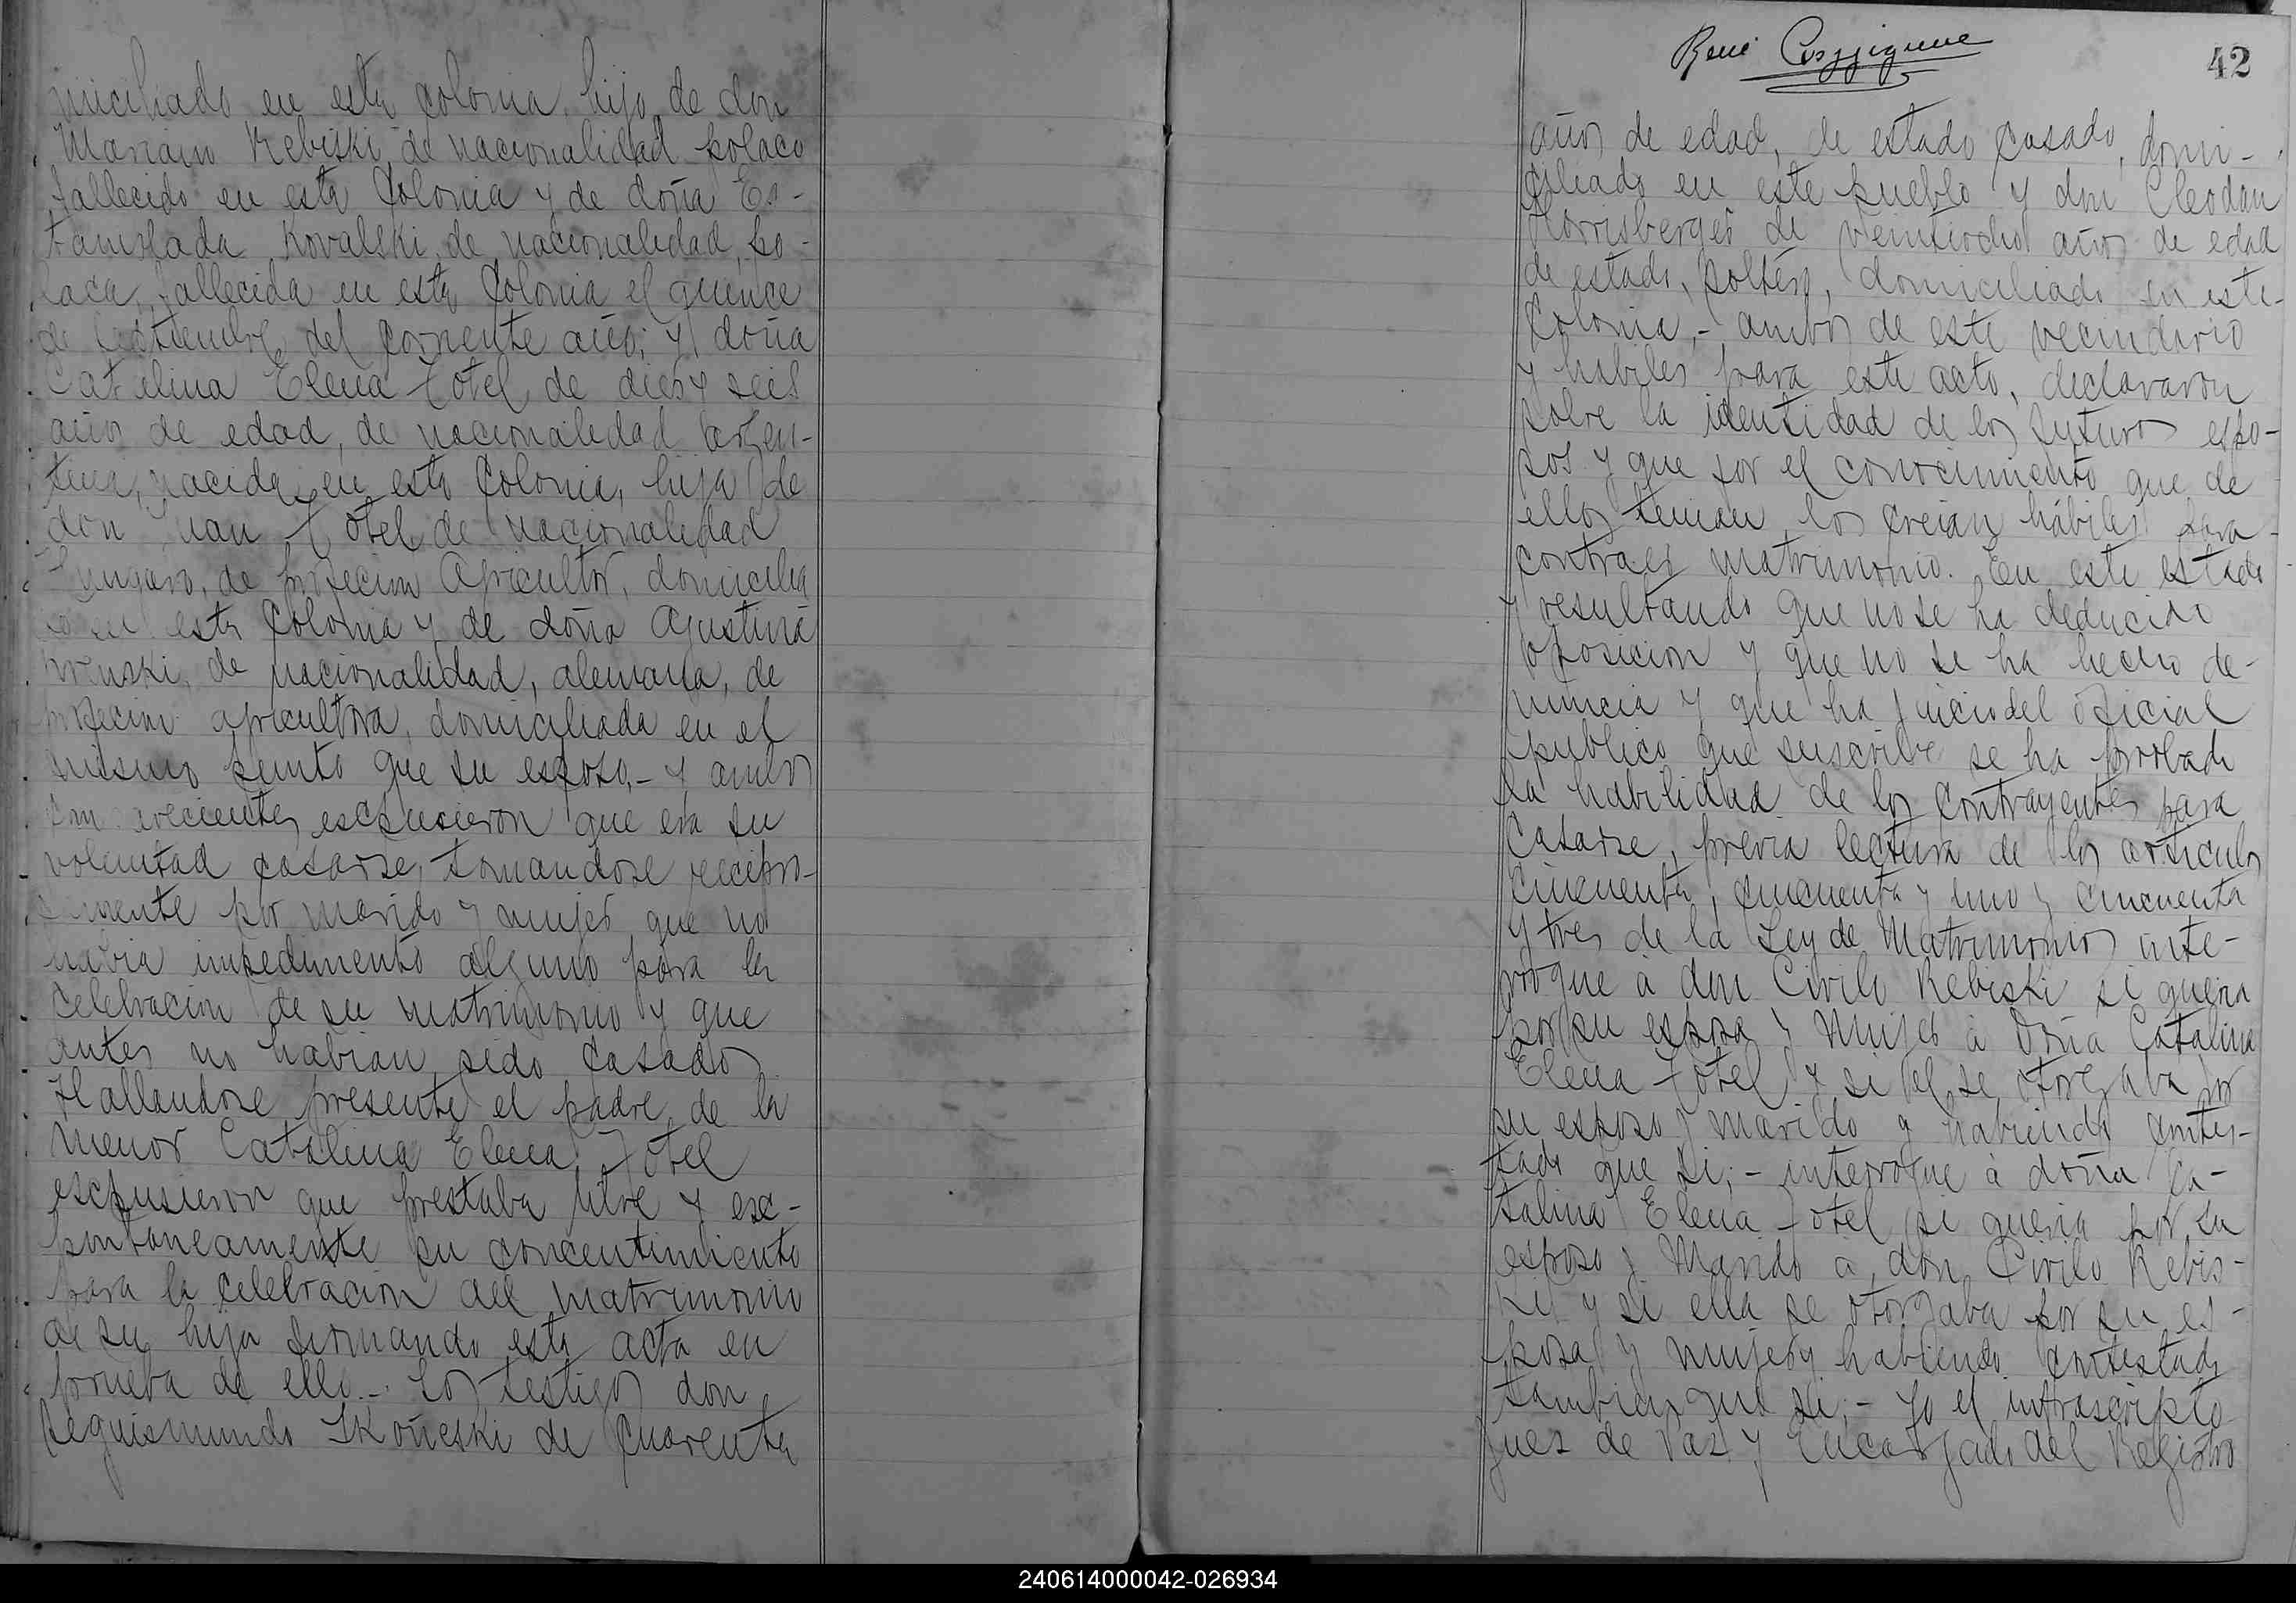 miciliado en esta Colonia, hijo de don
Mariano Rebiski, de nacionalidad polaco
fallecido en esta Colonia y de doña Es-
tanislada Kovalski, de nacionalidad, po-
laca, fallecida en esta Colonia el quince
de Septiembre del corriente año; y doña
Catalina Elena Fotel de dies y seis
años de edad, de nacionalidad argen-
tina, nacida en esta Colonia, hija de
don Juan Fotel de nacionalidad
Hungaro, de profecion Agricultor, domicilia
do en esta Colonia y de doña Agustina
de nacionalidad, alemana, de
profecion agricultora, domiciliada en el
mismo punto que su esposo,- y ambos
comparecientes escpusieron que era su
voluntad casarse, tomandose recipro-
camente por marido y mujer que no
habia impedimento alguno para la
celebracion de su matrimonio y que
antes no habian sido casados
Hallandose presente el padre de la
menor Catalina Elena Fotel
escpusieron que prestaba libre y esc-
pontaneamente su concentimiento
para la celebracion del matrimonio
de su hija firmando esta acta en
prueba de ello.- Los testigos don
Seguismundo Skoñeski de cuarenta
René
42
años de edad, de estado casado, domi-
ciliado en este pueblo y don Cleodan
Florisberger de veintiocho años de edad
de estado, soltero, domiciliado en este
Colonia,- ambos de este vecindario
y habiles para este acto, declararon
sobre la identidad de los futuros espo-
sos y que por el conocimiento que de
ellos tenian los creian hábiles para
contraer matrimonio. En este estado
y resultando que no se ha deducido
oposicion y que no se ha hecho de-
nuncia y que ha juicio del oficial
publico que suscribe se ha probado
la habilidad de los contrayentes para
casarse, previa lectura de los articulos
cincuenta, cincuenta y uno y cincuenta
y tres de la Ley de Matrimonios inte-
rroque à don Cirilo Rebiski si queria
por su esposa y Mujer à Doña Catalina
Elena Fotel y si el se otorgaba por
su esposo y marido y habiendo contes-
tado que si;- interroque à doña Ca-
talina Elena Fotel si queria por su
esposo y Marido a don Cirilo Rebis-
ki y si ella se otorgaba por su es-
posa y mujer y habiendo contestado
tambien que si;- Yo el infrascripto
Juez de Paz y Encargado del Registro
240614000042-026934